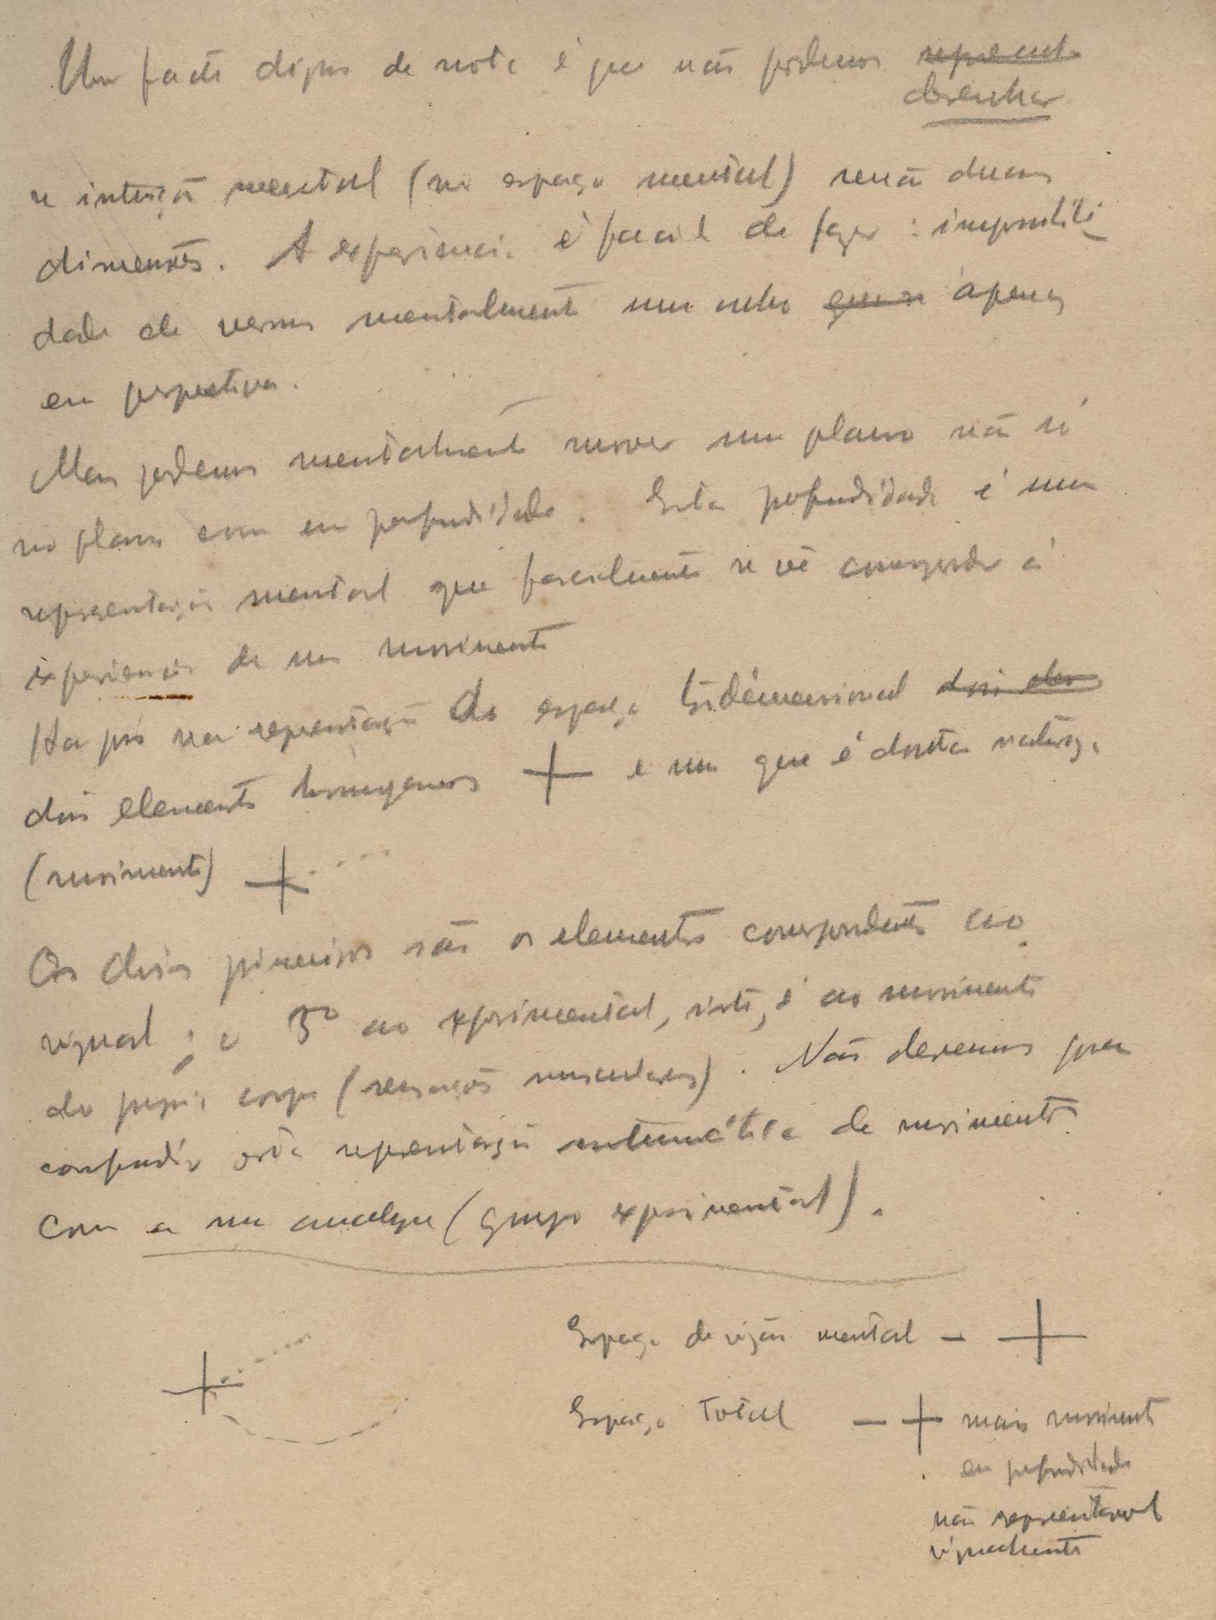 Um facto digno de nota é que não podemos represent
desenhar
na intuição mental (no espaço mental) senão duas
dimensões. A experiencia é facil de fazer: impossibili-
dade de vermos mentalmente um cubo apenas
em perspectiva.
Mas podemos mentalmente mover um plano não só
no plano como em profundidade. Esta profundidade é uma
representação mental que facilmente se vê corresponder á
experiencia de um movimento
Ha pois na representação do espaço tridimensional dois elem
dois elementos homogeneos + e um que é doutra natureza
(movimento) +
Os dois primeiros são os elementos correspondentes ao
visual; o 3º ao experimental, isto, é ao movimento
do proprio corpo (sensações musculares). Não devemos porem
confundir esta representação matemática de movimento
com a sua analyse (grupo experimental).
Espaço de visão mental - +
Espaço total - + mais movimento
em profundidade
não representavel
visualmente